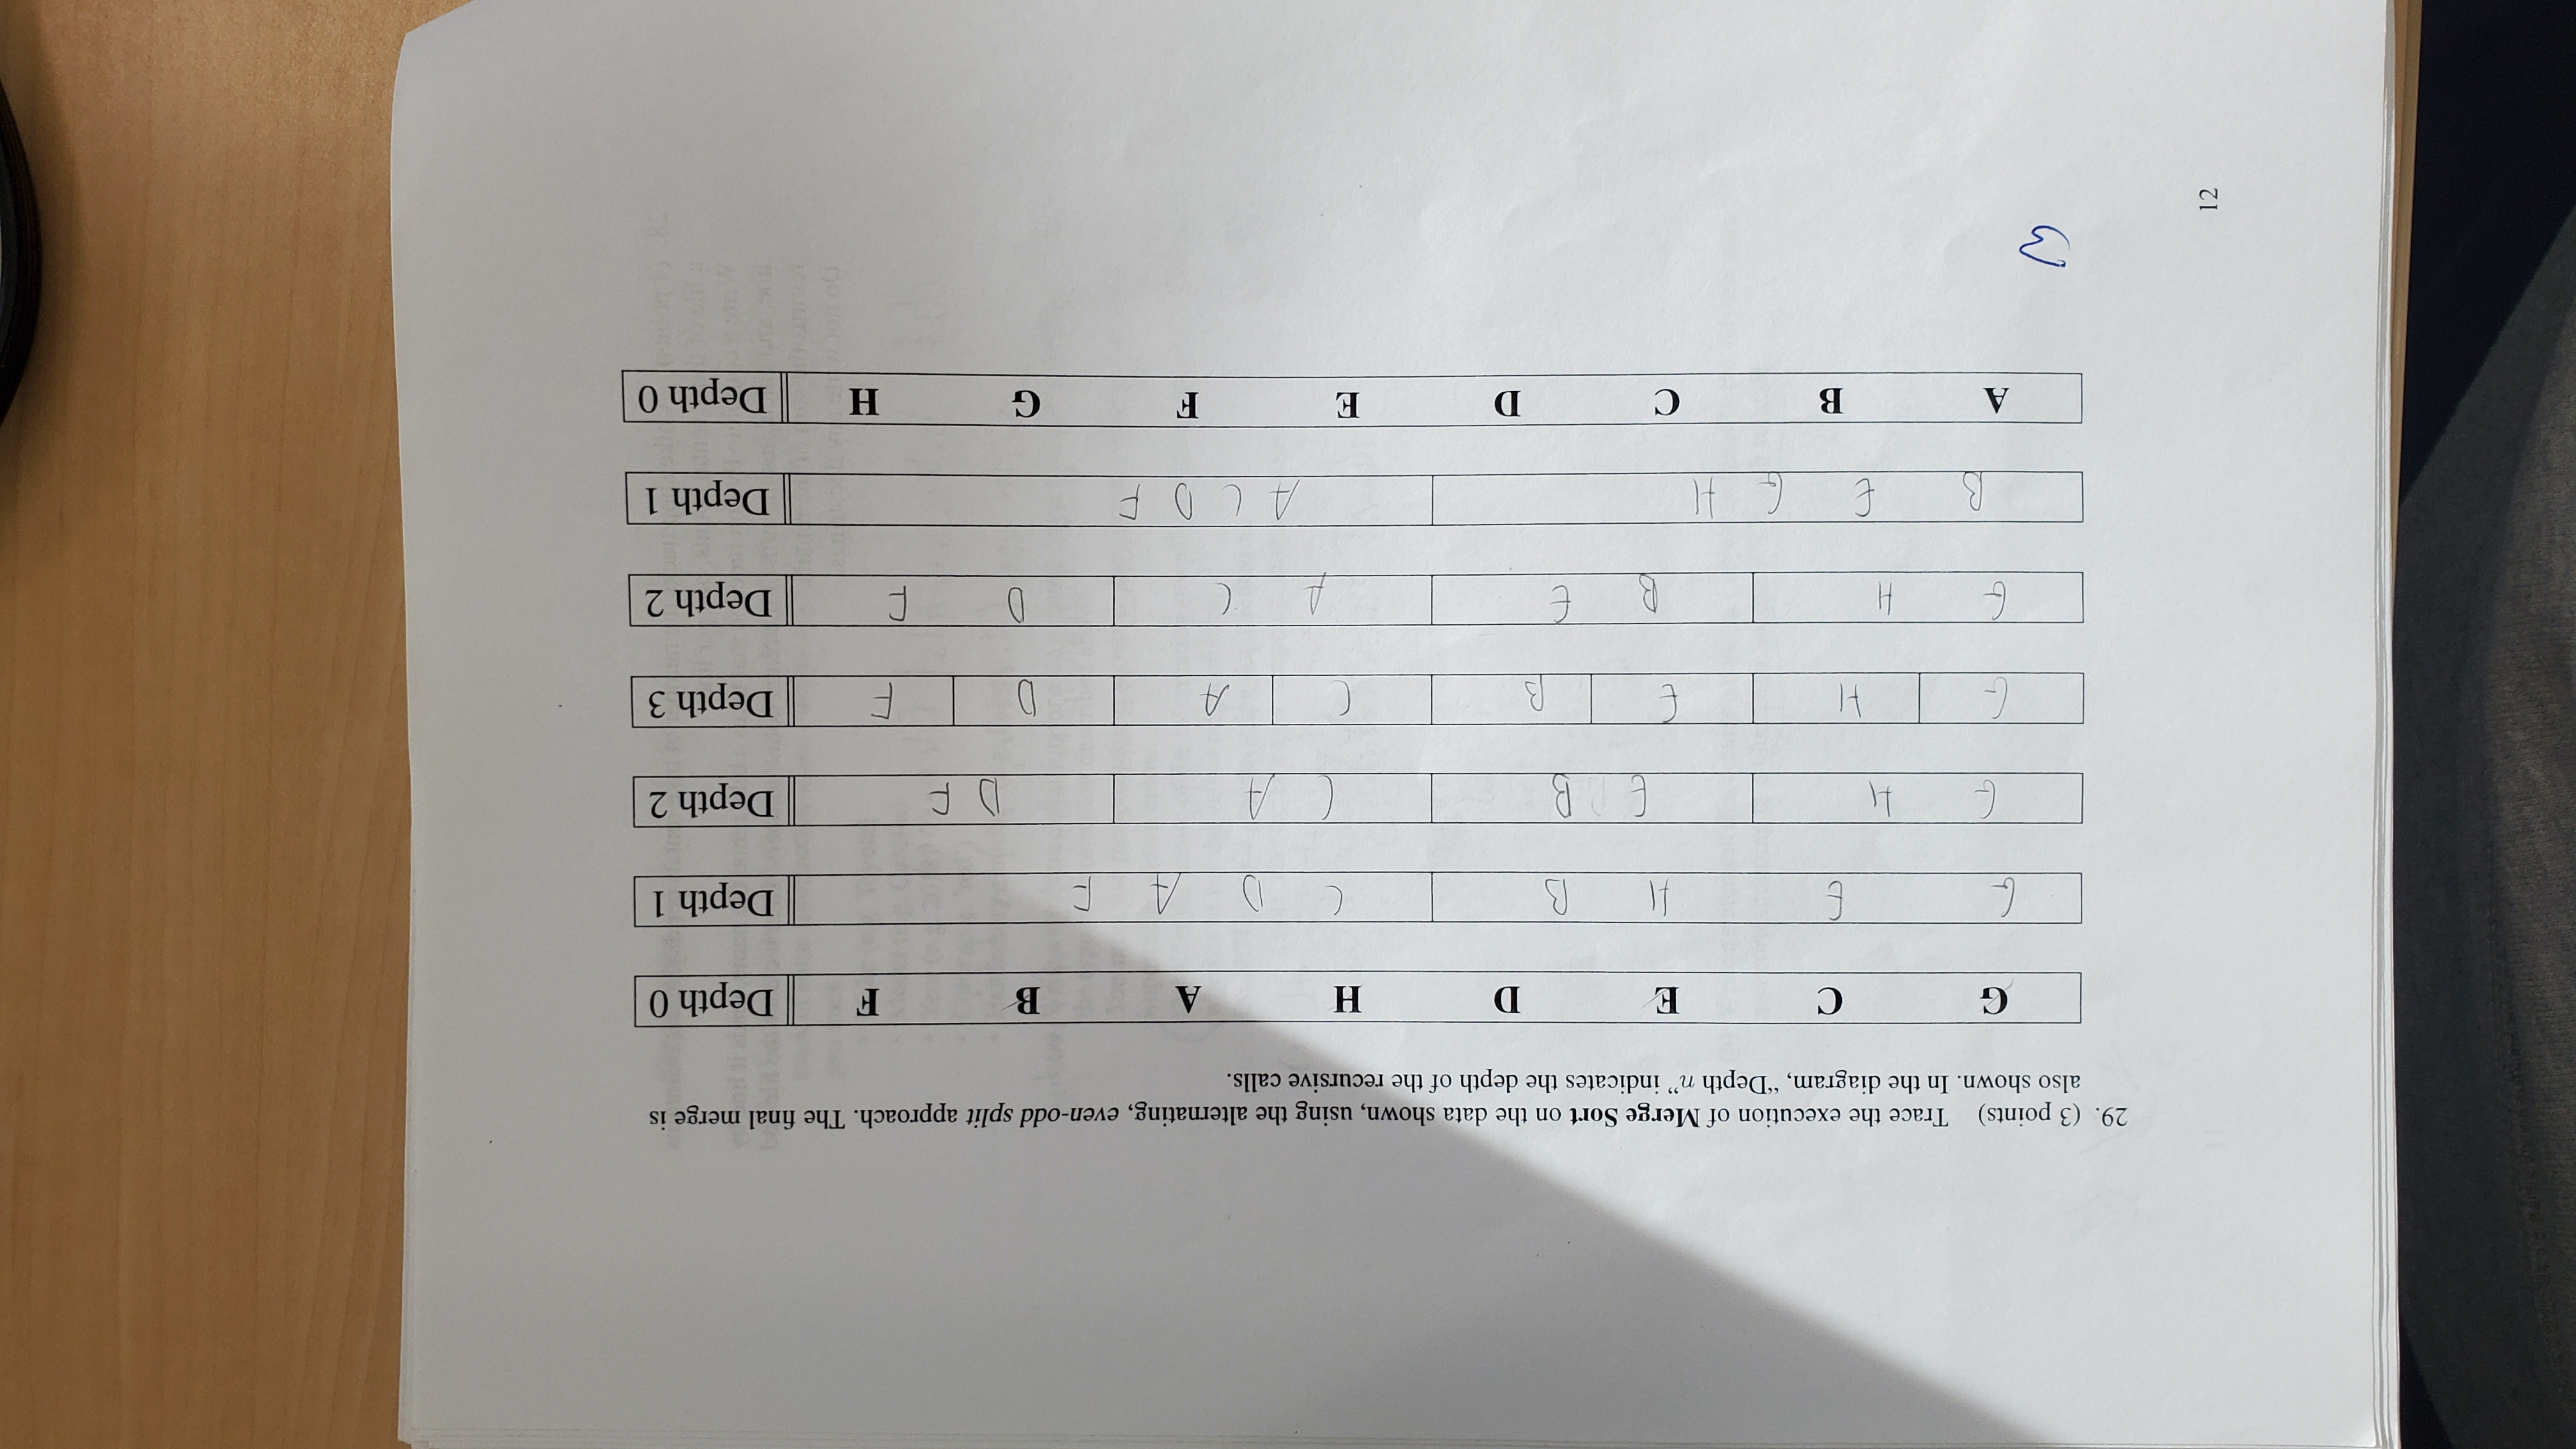 29. (3 points) Trace the execution of Merge Sort on the data shown, using the alternating, even-odd split approach. The final merge is
also shown. In the diagram, “Depth n” indicates the depth of the recursive calls.
G C E D H A B F Depth 0
G E H B C D A F Depth 1
G H E B C A D F Depth 2
G H E B C A D F Depth 3
G H B E A C D F Depth 2
B E G H A C D F Depth 1
A B C D E F G H Depth 0
3
12